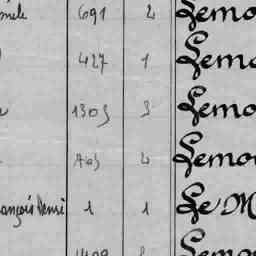 691 2 Lemo
427 1 Lemo
1303 3 Lemo
2 Lemo
ançois Henri 1 1 Le M
Lemo